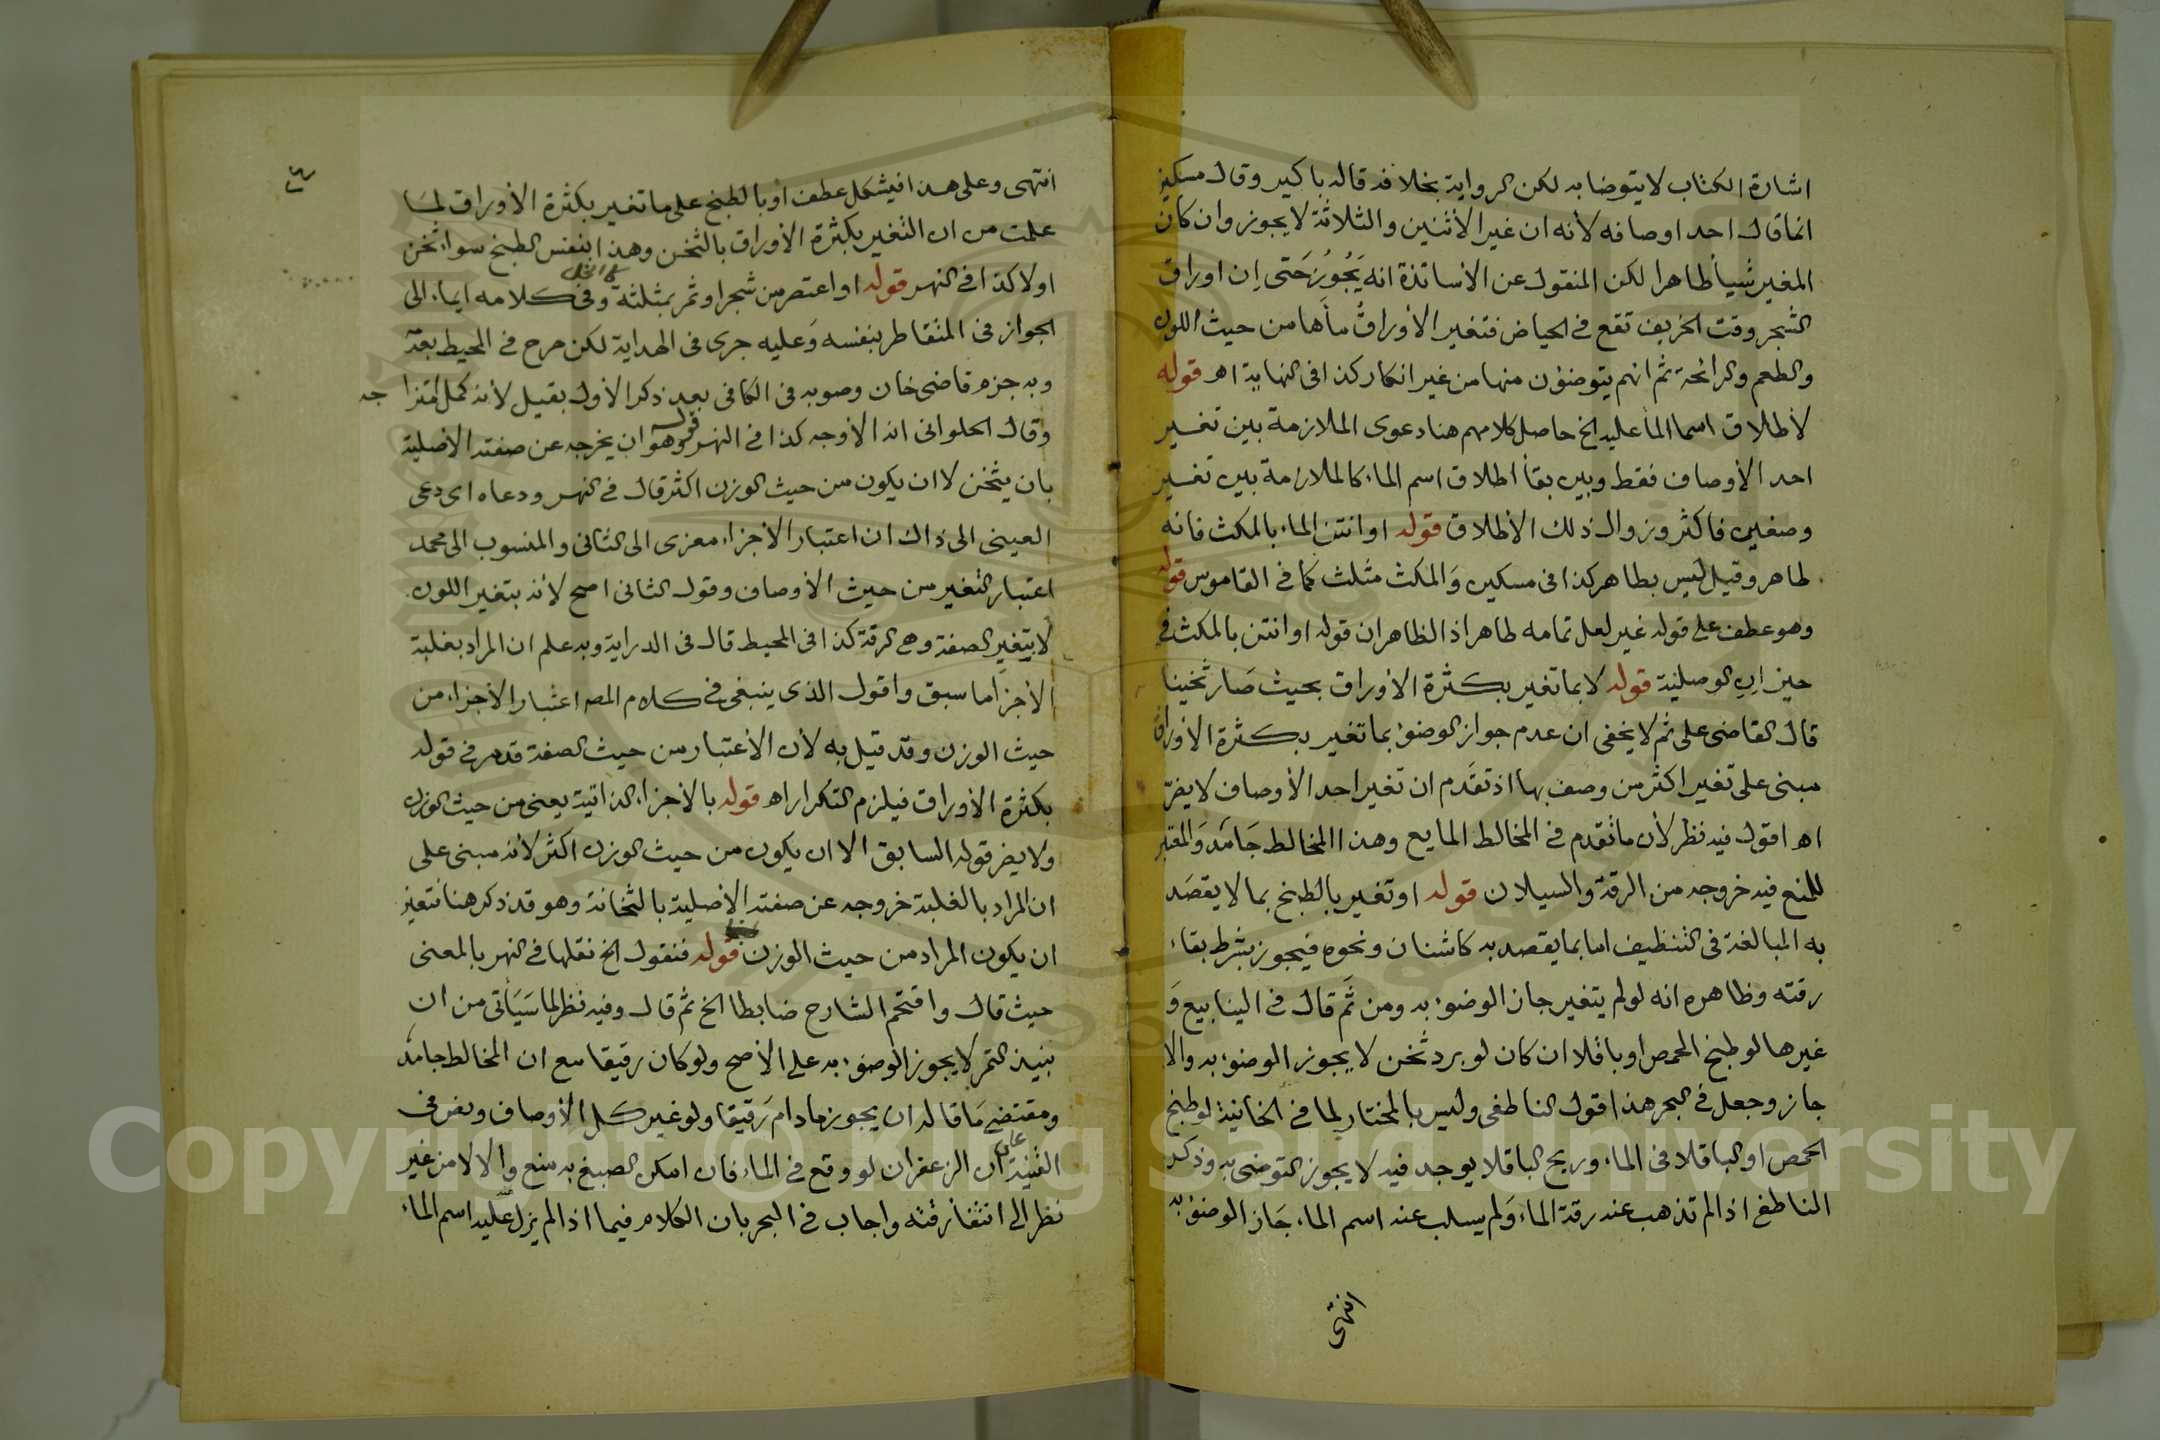 اشارة الكتاب لا يتوضا به لكن الرواية بخلافه قاله باكير وقال مسكين
انما قال احد اوصافه لأنه ان غير الأثنين والثلاثة لا يجوز وان كان
المغير شيأ طاهرا لكن المنقول عن الأساتذة انه يَجُوُز حَتى اِن اوراق
الشجر وقت الخريف تقع في الحياض فتغير الأوراقُ مأَها من حيث اللون
والطعم والرائحة ثم انهم يتوضؤن منها من غير انكار كذا في النهاية اهـ قوله
لأطلاق اسما المأ عليه الخ حاصل كلامهم هنا دعوى الملازمة بين تغير
احد الأوصاف فقط وبين بقأ اطلاق اسم الماء كالملازمة بين تغير
وصفين فاكثر وزوال ذلك الأطلاق قوله او انتن الماء بالمكث فانه
طاهر وقيل ليس بطاهر كذا في مسكين وَالمكث مثلث كما في القاموس قوله
وهو عطف على قوله غير لعل تمامه طاهر اذ الظاهر ان قوله او انتن بالمكث في
حيز ان الوصلية قوله لا بما تغير بكثرة الأوراق بحيث صَار ثخينا
قال القاضى على ثم لا يخفى ان عدم جواز الوضؤ بما تغير بكثرة الأوراق
مبنى على تغير اكثر من وصف بها اذ تقدم ان تغير احد الأوصاف لا يضرّ
اهـ اقول فيه نظر لأن ما تقدم في المخالط المايع وهذا المخالط جَامد وَالمعتبر
للمنع فيه خروجه من الرقة والسيلان قوله او تغير بالطبخ بما لا يقصَد
به المبالغة في التنظيف اما بما يقصد به كاشنان ونحوه فيجوز بشرط بقاء
رقته وظاهره انه لو لم يتغير جاز الوضوء به ومن ثَم قال في الينابيع وَ
غيرها لو طبخ الحمص او باقلا ان كان لو برد ثخن لا يجوز الوضوء به والا
جاز وجعل في البحر هذا قول الناطفى وليس بالمختار لما في الخانية لو طبخ
الحمص او الباقلا في الماء وريح الباقلا يوجد فيه لا يجوز التوضى به وذكر
الناطفى اذا لم تذهب عنه رقة الماء وَلم يسلب عنه اسم الماء جَاز الوضؤ به
انتهى
انتهى وعلى هذا فيشكل عطف او بالطبخ على ما تغير بكثرة الأوراق لما
علمت من ان التغير بكثرة الأوراق بالثخن وهذا بنفس الطبخ سواء ثخن
اولا كذا في النهر قوله او اعتصر من شجر او ثمر بمثلثة وفى كلامه ايماء الى
الجواز في المتقاطر بنفسه وَعليه جرى في الهداية لكن صرح في المحيط بعدَ
وبه جزم قاضى خان وصوبه في الكافى بعد ذكر الأول بقيل لأنه كمل امتزا جه
وقال الحلوانى انه الأوجه كذا في النهر قوله وهو ان يخرجه عن صفته الأصلية
بان يثخن لا ان يكون من حيث الوزن اكثر قال في النهر ودعاه اى دعى
العينى الى ذاك ان اعتبار الأجزاء معزى الى الثانى والمنسوب الى محمد
اعتبار التغير من حيث الأوصاف وقول الثانى اصح لأنه بتغير اللون
لا يتغير الصفة وهى الرقة كذا في المحيط قال في الدراية وبه علم ان المراد بغلبة
الأجزا ما سبق واقول الذى ينبغى في كلام المص اعتبار الأجزاء من
حيث الوزن وقد قيل به لأن الأعتبار من حيث الصفة قدم في قوله
بكثرة الأوراق فيلزم التكرار اهـ قوله بالأجزاء الذاتية يعنى من حيث الوزن
ولا يضر قوله السابق الا ان يكون من حيث الوزن اكثر لأنه مبنى على
ان المراد بالغلبة خروجه عن صفته الأصلية بالثخانة وهو قد ذكر هنا فتعين
ان يكون المراد من حيث الوزن قوله فنقول الخ نقلها في النهر بالمعنى
حيث قال واقتحم الشارح ضابطا الخ ثم قال وفيه نظر لما سَيَأتى من ان
نبيذ التمر لا يجوز الوضوء به على الأصح ولو كان رقيقا مع ان المخالط جامد
ومقتضى مَا قاله ان يجوز ما دام رَقيقا ولو غير كل الأوصاف ونص في
القنية على ان الزعفران لو وقع في الماء فان امكن الصبغ به منع والا لا من غير
نظر الى انتفا رقته واجاب في البحر بان الكلام فيما اذا لم يزل عليه اسم الماء